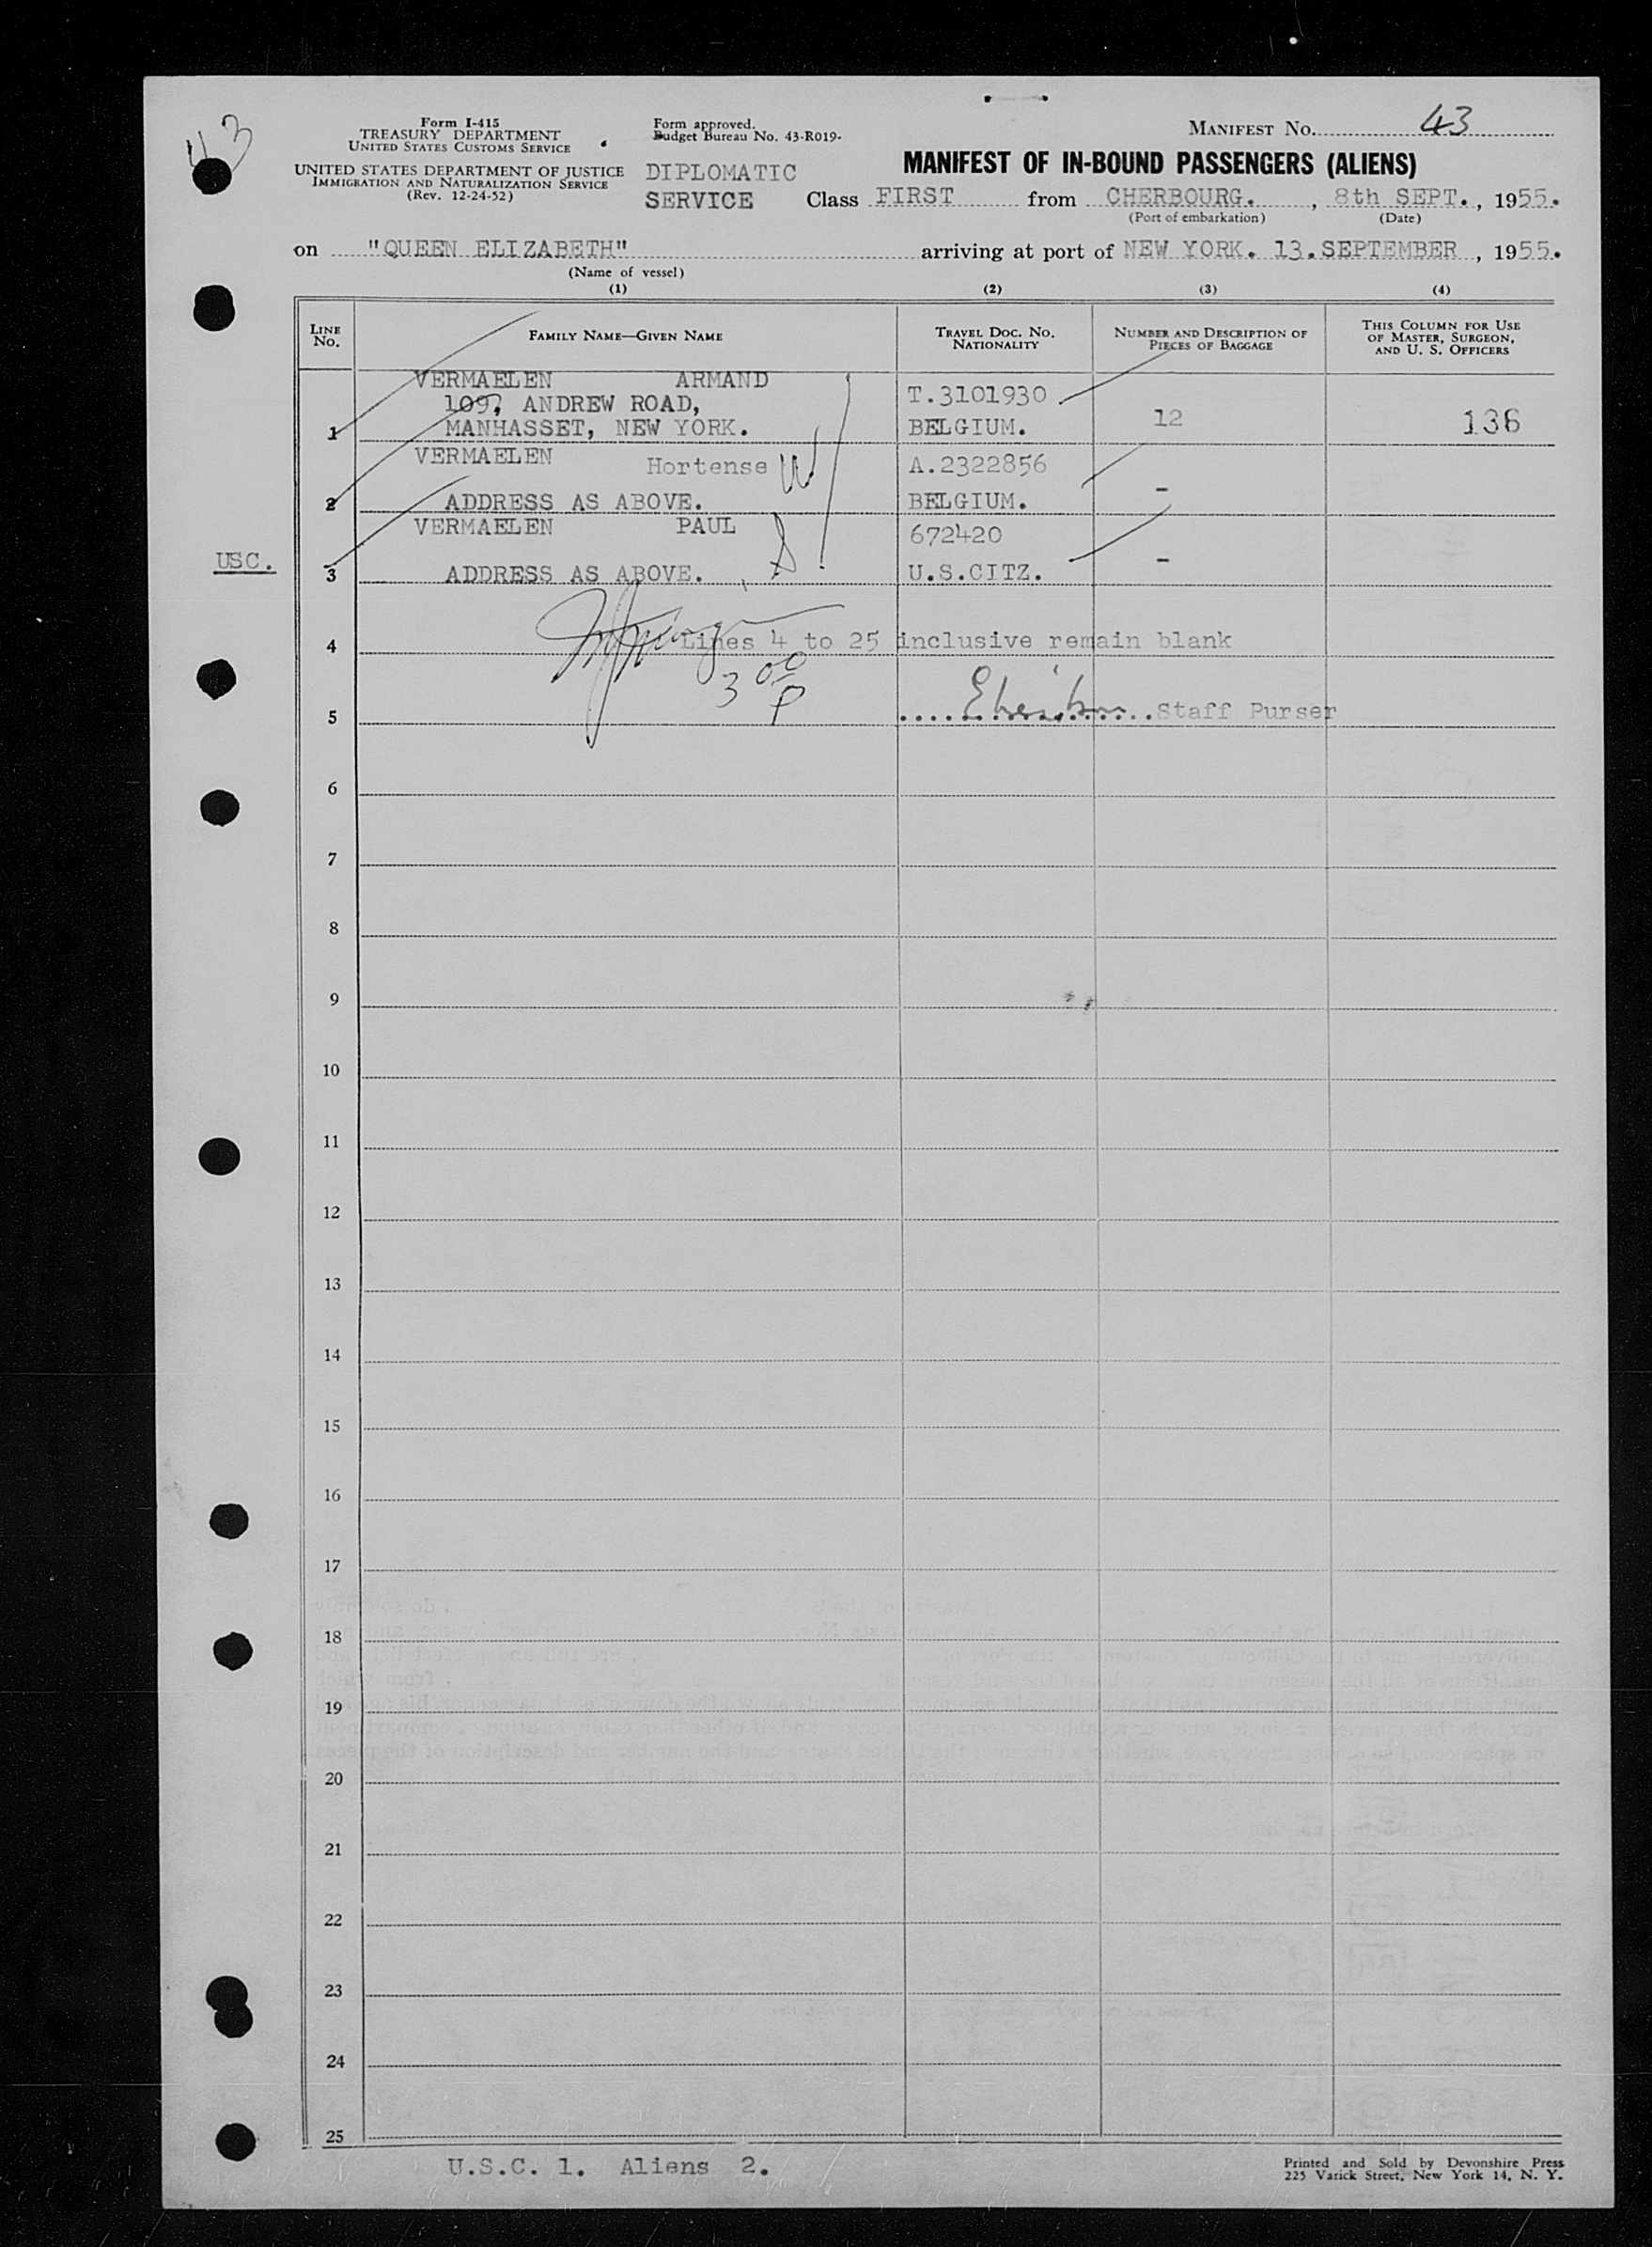 43
Form I-415
TREASURY DEPARTMENT
UNITED STATES CUSTOMS SERVICE
UNITED STATES DEPARTMENT OF JUSTICE
IMMIGRATION AND NATURALIZATION SERVICE
(Rev. 12-24-52)
Form approved.
Budget Bureau No. 43-R019-
DIPLOMATIC
SERVICE
MANIFEST NO. 43
MANIFEST OF IN-BOUND PASSENGERS (ALIENS)
Class FIRST from CHERBOURG. , 8th SEPT. , 1955.
(Port of embarkation) (Date)
on "QUEEN ELIZABETH" arriving at port of NEW YORK. 13.SEPTEMBER , 1955.
(Name of vessel)
(1) (2) (3) (4)
LINE NO. FAMILY NAME—GIVEN NAME TRAVEL DOC. NO. NATIONALITY NUMBER AND DESCRIPTION OF PIECES OF BAGGAGE THIS COLUMN FOR USE OF MASTER, SURGEON, AND U. S. OFFICERS
VERMAELEN ARMAND T.3101930
109, ANDREW ROAD,
1 MANHASSET, NEW YORK. BELGIUM. 12 136
VERMAELEN Hortense W A.2322856
2 ADDRESS AS ABOVE. BELGIUM. -
VERMAELEN PAUL S 672420
USC. 3 ADDRESS AS ABOVE. U.S.CITZ. -
4 Lines 4 to 25 inclusive remain blank
3 00 P
5 Staff Purser
6
7
8
9
10
11
12
13
14
15
16
17
18
19
20
21
22
23
24
25
U.S.C. 1. Aliens 2.
Printed and Sold by Devonshire Press
225 Varick Street, New York 14, N. Y.